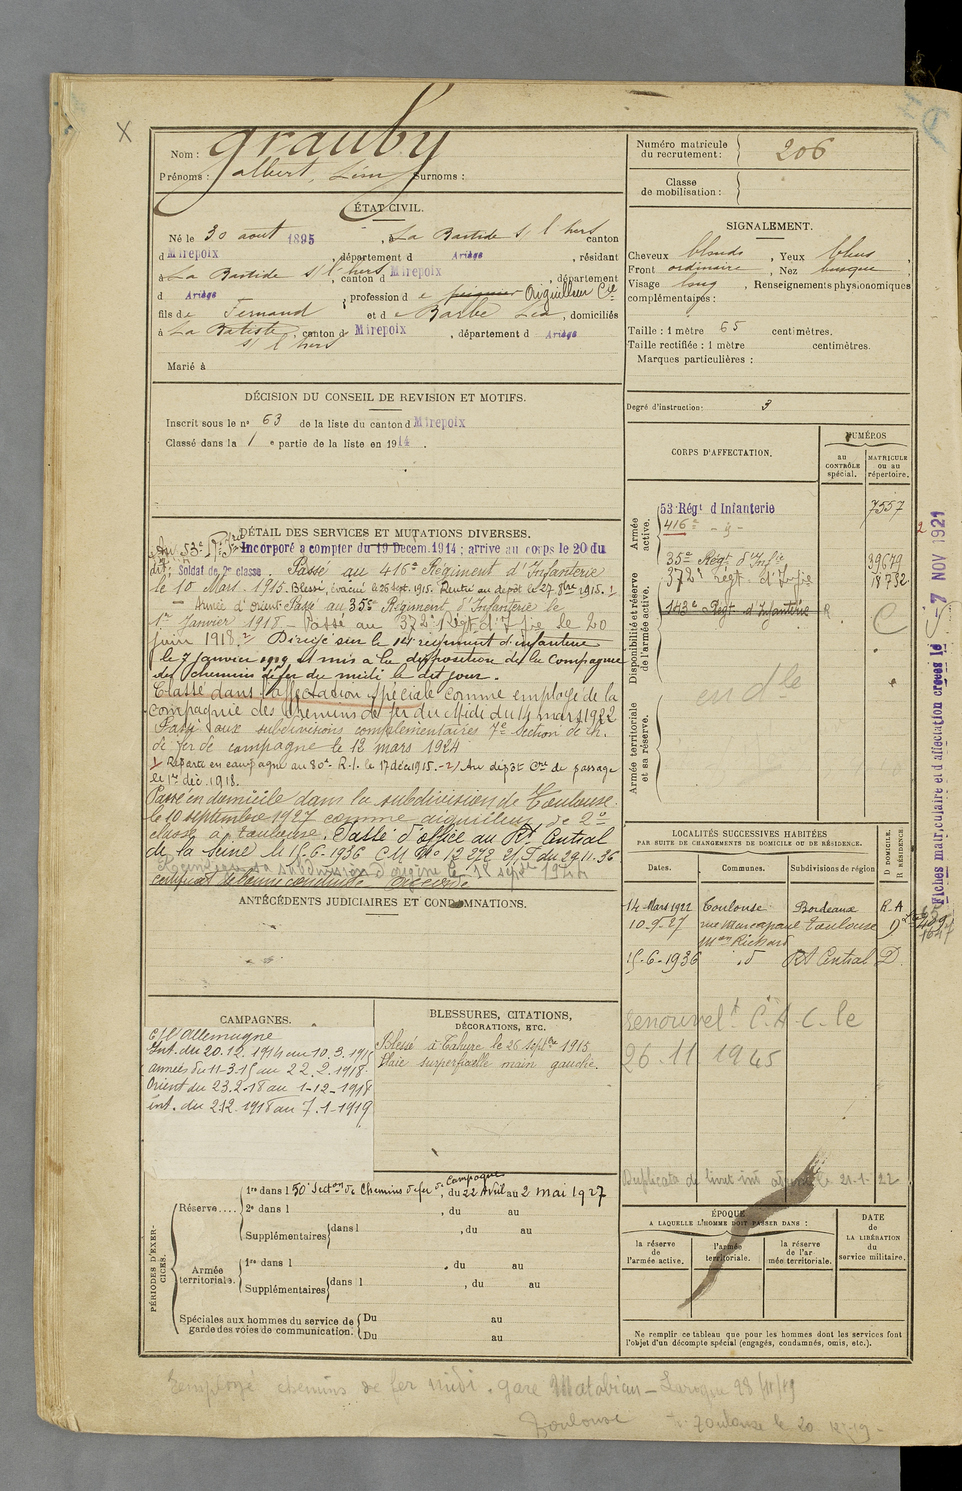 X
Nom : Grauby
Prénoms : Albert, Léon Surnoms :
Numéro matricule
du recrutement : 206
Classe
de mobilisation :
ÉTAT CIVIL.
Né le 30 aout 1895, à La Bastide s/ l'hers canton
d Mirepoix, département d Ariège, résidant
à La Bastide s/ l'hers, canton d Mirepoix, département
d Ariège, profession d e Aiguilleur Cie
fils de Fernand et de Barbe Léa, domiciliés
à La Batiste s/ l hers, canton d Mirepoix, département d Ariège
Marié à
SIGNALEMENT.
Cheveux blonds, Yeux bleus,
Front ordinaire, Nez busqué,
Visage long, Renseignements physionomiques
complémentaires :
Taille : 1 mètre 65 centimètres.
Taille rectifiée : 1 mètre centimètres.
Marques particulières :
Degré d'instruction : 3
DÉCISION DU CONSEIL DE REVISION ET MOTIFS.
Inscrit sous le no 63 de la liste du canton d Mirepoix
Classé dans la 1 e partie de la liste en 1914.
CORPS D'AFFECTATION.
NUMÉROS
au
CONTRÔLE
spécial.
MATRICULE
ou au
répertoire.
Armée
active.
53 Régt d'Infanterie 7557
416e - d -
Disponibilité et réserve
de l'armée active.
35e Régt d'Infie 39679
372e régt d'Infie 18732
143e Régt d'Infanterie R. C
en dle
Armée territoriale
et sa réserve.
DÉTAIL DES SERVICES ET MUTATIONS DIVERSES.
Au 53e Rt d'Inf Incorporé a compter du 19 Decem. 1914 ; arrive au corps le 20 du
dit, Soldat de 2e classe. Passé au 416e Régiment d'Infanterie
le 10 Mars 1915. Blessé, évacué le 26 sept. 1915. Rentré au dépôt le 27 8bre 1915. 1
- Armée d'Orient. Passé au 35e Régiment d'Infanterie le
1er Janvier 1918. - Passé au 372e Régt d'Infie le 20
Juin 1918. 2 Dirigé sur le régiment d'infanterie
le 7 janvier 1919 et mis a la disposition de la Compagnie
des chemins de fer du midi le dit jour.
Classé dans l'affectation spéciale comme employé de la
Compagnie des chemins de fer du Midi du 14 mars 1922
Passé aux subdivisions complementaires 7e section de ch.
de fer de campagne le 12 mars 1924
1/ Reparti en campagne au 80e R.I. le 17 déc 1915. - 2/ Au dépôt Cre de passage
le 1er déc. 1918.
Passé en domicile dans la subdivision de Toulouse
le 10 septembre 1927 comme aiguilleur de 2e
classe à Toulouse. Passé d'office au Rt Central
de la Seine le 15-6-1936 C M No 12 272 1/P du 29.11.36
subdivision d'origine le 18 septe 1944
certificat de bonne conduite accordé
ANTÉCÉDENTS JUDICIAIRES ET CONDAMNATIONS.
LOCALITÉS SUCCESSIVES HABITÉES
PAR SUITE DE CHANGEMENTS DE DOMICILE OU DE RÉSIDENCE.
Dates. Communes. Subdivisions de région
D DOMICILE.
R RÉSIDENCE.
14 Mars 1922 Toulouse Bordeaux R-A
10-9-27 rue Marcapaul Toulouse D
Mon Richard
15-6-1936 d Rt Central D.
renouvelt C.A.C. le
26 11 1945
CAMPAGNES.
C/ l'Allemagne
Int. du 20.12.1914 au 10.3.1915
armées du 11-3-15 au 22.2.1918.
Orient du 23.2.18 au 1-12-1918
int. du 2.12.1918 au 7.1.1919
BLESSURES, CITATIONS,
DÉCORATIONS, ETC.
Blessé à Tahure le 26 septbre 1915
Plaie superficielle main gauche.
Duplicata de livret ind le 21-1-22
PÉRIODES D'EXERCICES.
Réserve....
1re dans l 50e Secton de Chemins de fer de Campagne, du 22 Avril au 2 mai 1927
2e dans l , du au
Supplémentaires dans l , du au
Armée
territoriale.
1re dans l , du au
Supplémentaires dans l , du au
Spéciales aux hommes du service de
garde des voies de communication.
Du au
Du au
ÉPOQUE
A LAQUELLE L'HOMME DOIT PASSER DANS :
la réserve
de
l'armée active.
l'armée
territoriale.
la réserve
de l'armée territoriale.
DATE
de
LA LIBÉRATION
du
service militaire.
Ne remplir ce tableau que pour les hommes dont les services font
l'objet d'un décompte spécial (engagés, condamnés, omis, etc.).
Fiches matriculaire et d'affectation créées le - 7 NOV 1921
Employé chemins de fer midi - gare Matabiau - Laroque 28/11/19
Toulouse Toulouse le 20-12-19-